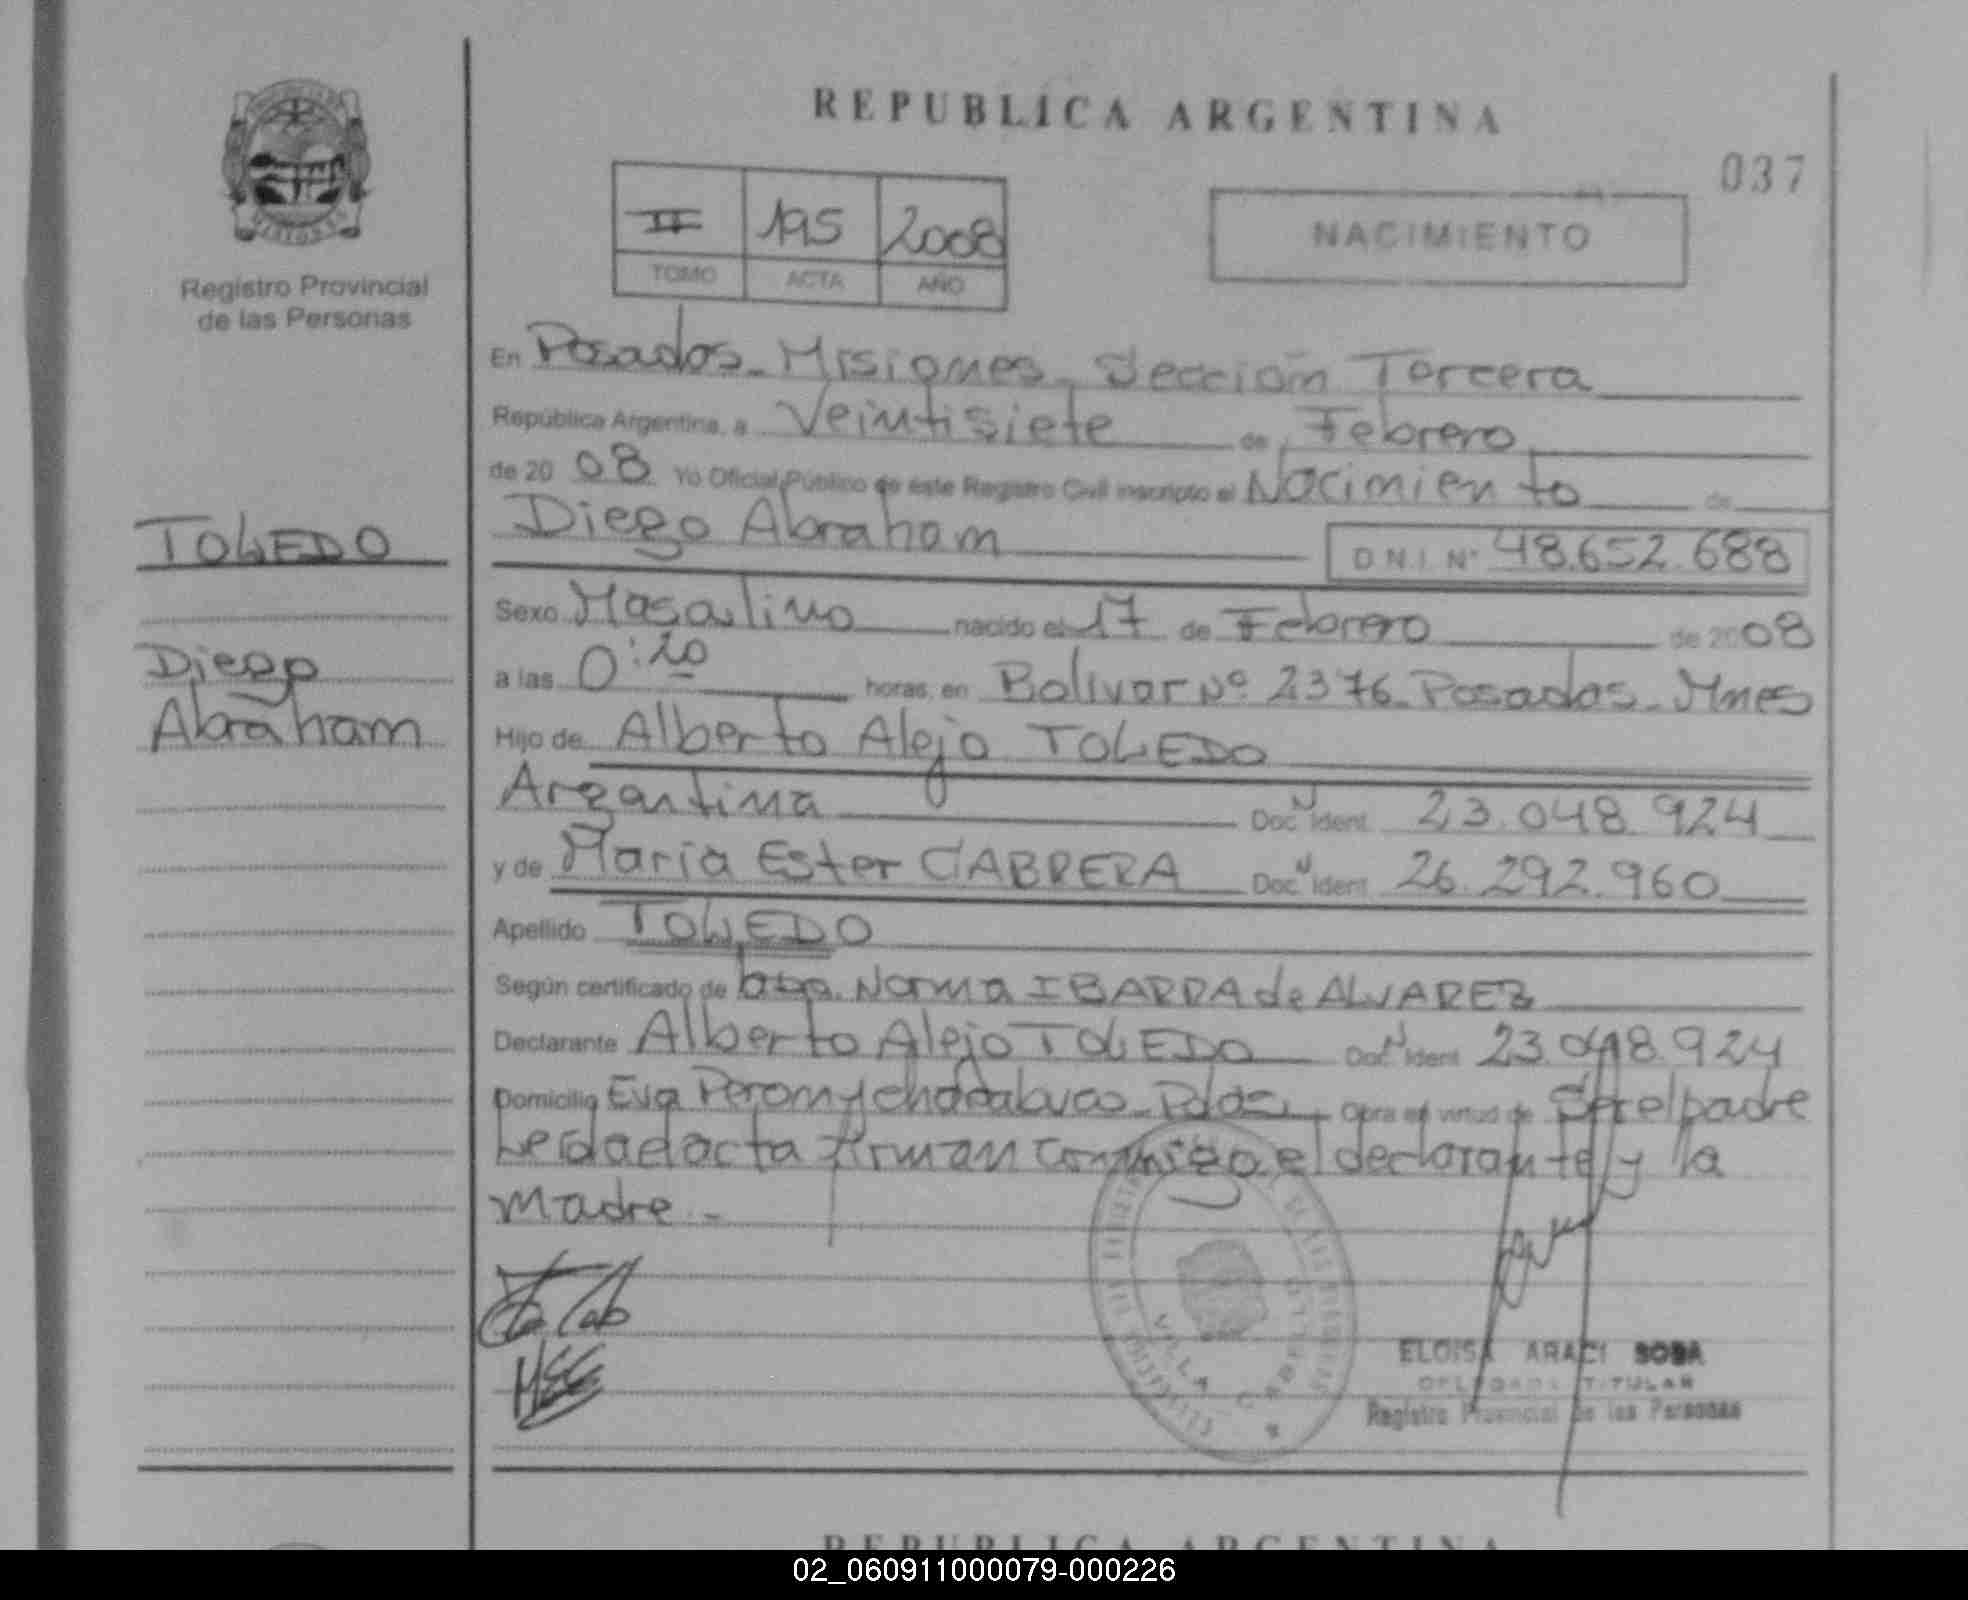 REPUBLICA ARGENTINA
037
II 195 2008
TOMO ACTA AÑO
NACIMIENTO
Registro Provincial
de las Personas
En Posadas - Misiones - Sección Tercera
República Argentina, a Veintisiete de Febrero
de 20 08 Yo Oficial Público de este Registro Civil inscripto el Nacimiento de
Diego Abraham D.N.I. Nº 48.652.688
TOLEDO
Diego
Abraham
Sexo Masculino nacido el 17 de Febrero de 2008
a las 0:20 horas, en Bolivar Nº 2376 - Posadas - Mnes
Hijo de Alberto Alejo TOLEDO
Argentina Doc. Ident. 23.048.924
y de María Ester CABRERA Doc. Ident. 26.292.960
Apellido TOLEDO
Según certificado de Norma IBARRA de ALVAREZ
Declarante Alberto Alejo TOLEDO Doc. Ident. 23.048.924
Domicilio Eva Peron y Pdas Obra en virtud de Ser el padre
Leida el acta firman conmigo el declarante y la
madre -
VILLA CABELLO
ELOISA ARACI SOSA
DELEGADA TITULAR
Registro Provincial de las Personas
REPUBLICA ARGENTINA
02_060911000079-000226